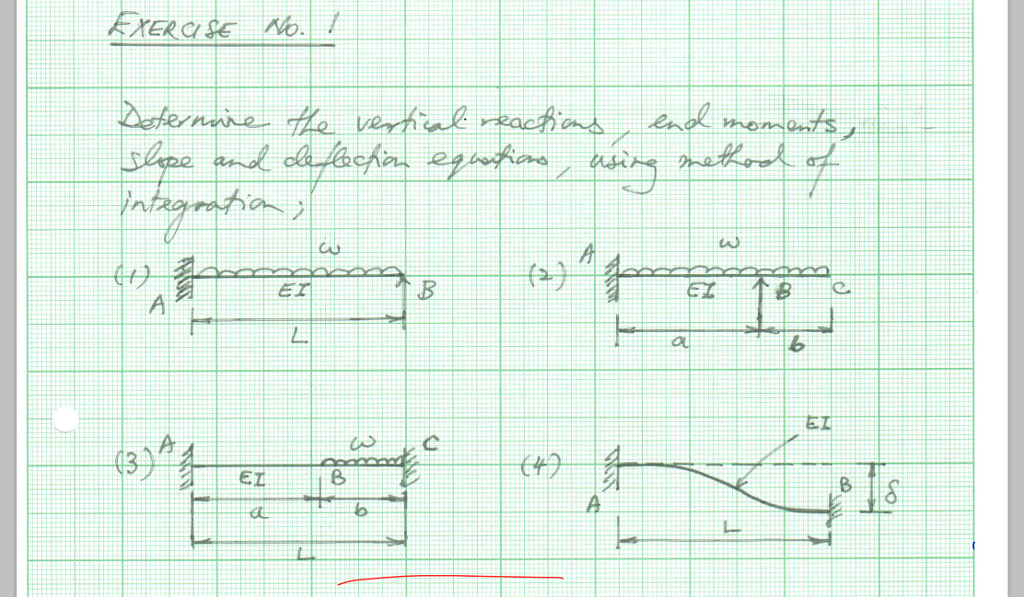 EXERCISE No. 1
Determine the vertical reactions, end moments,
slope and deflection equations, using method of
integration;
(1) A ω EI B L
(2) A ω EI B C a b
(3) A ω C EI B a b L
(4) EI A B δ L